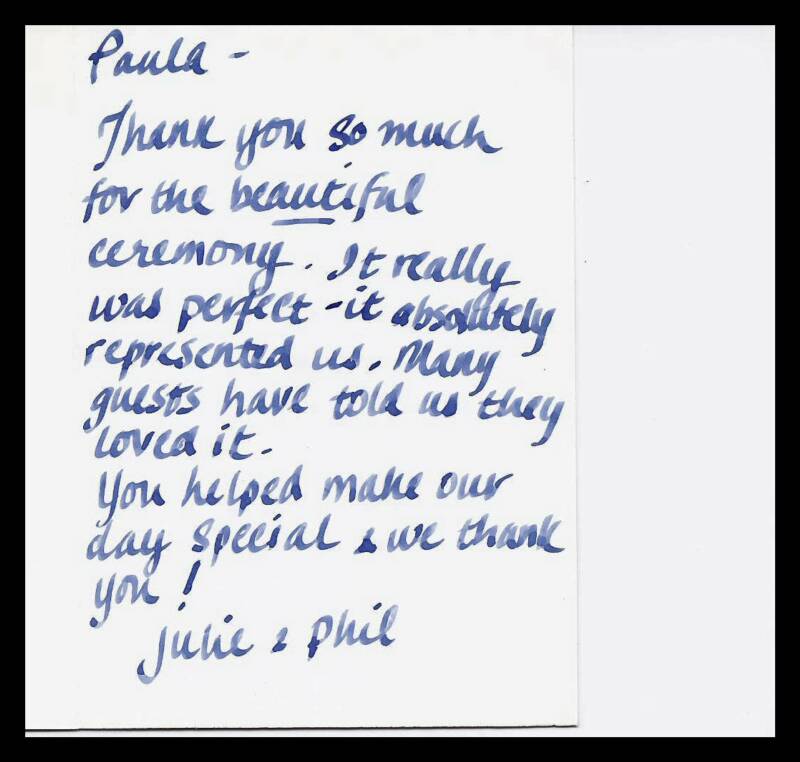 Paula -
Thank you so much
for the beautiful
ceremony. It really
was perfect - it absolutely
represented us. Many
guests have told us they
loved it.
You helped make our
day special & we thank
you!
Julie & Phil